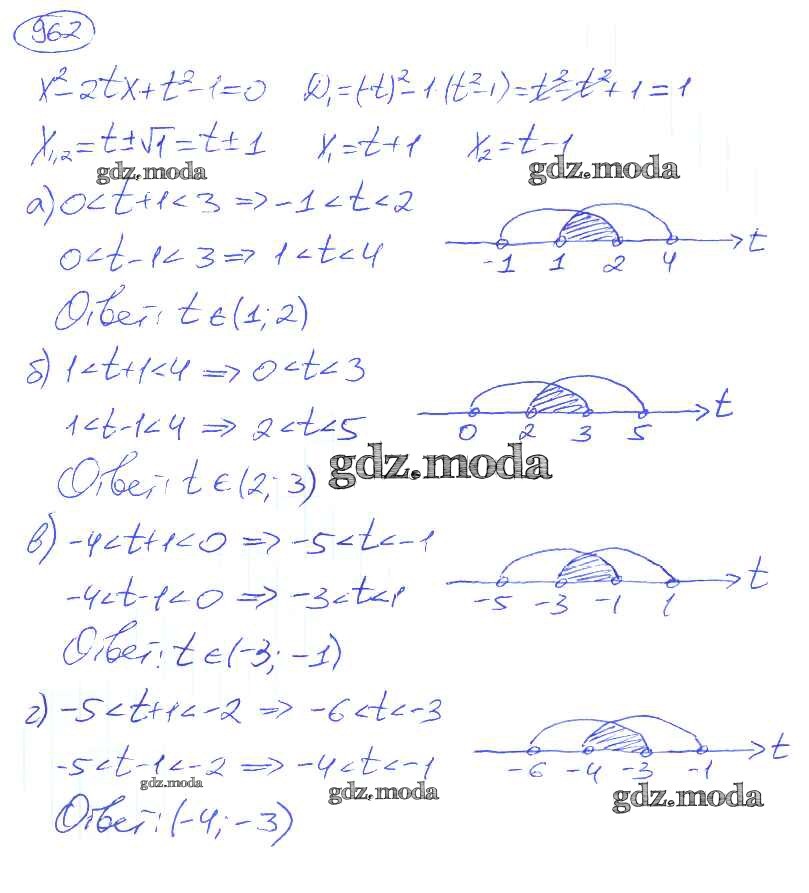 962
x²-2tx+t²-1=0 D₁=(-t)²-1(t²-1)=t²-t²+1=1
x₁,₂=t±√1=t±1 x₁=t+1 x₂=t-1
gdz.moda gdz.moda
а) 0<t+1<3 => -1<t<2
0<t-1<3 => 1<t<4
-1 1 2 4 t
Ответ: t∈(1; 2)
б) 1<t+1<4 => 0<t<3
1<t-1<4 => 2<t<5
0 2 3 5 t
Ответ: t∈(2; 3)
gdz.moda
в) -4<t+1<0 => -5<t<-1
-4<t-1<0 => -3<t<1
-5 -3 -1 1 t
Ответ: t∈(-3; -1)
г) -5<t+1<-2 => -6<t<-3
-5<t-1<-2 => -4<t<-1
-6 -4 -3 -1 t
gdz.moda gdz.moda gdz.moda
Ответ: (-4; -3)